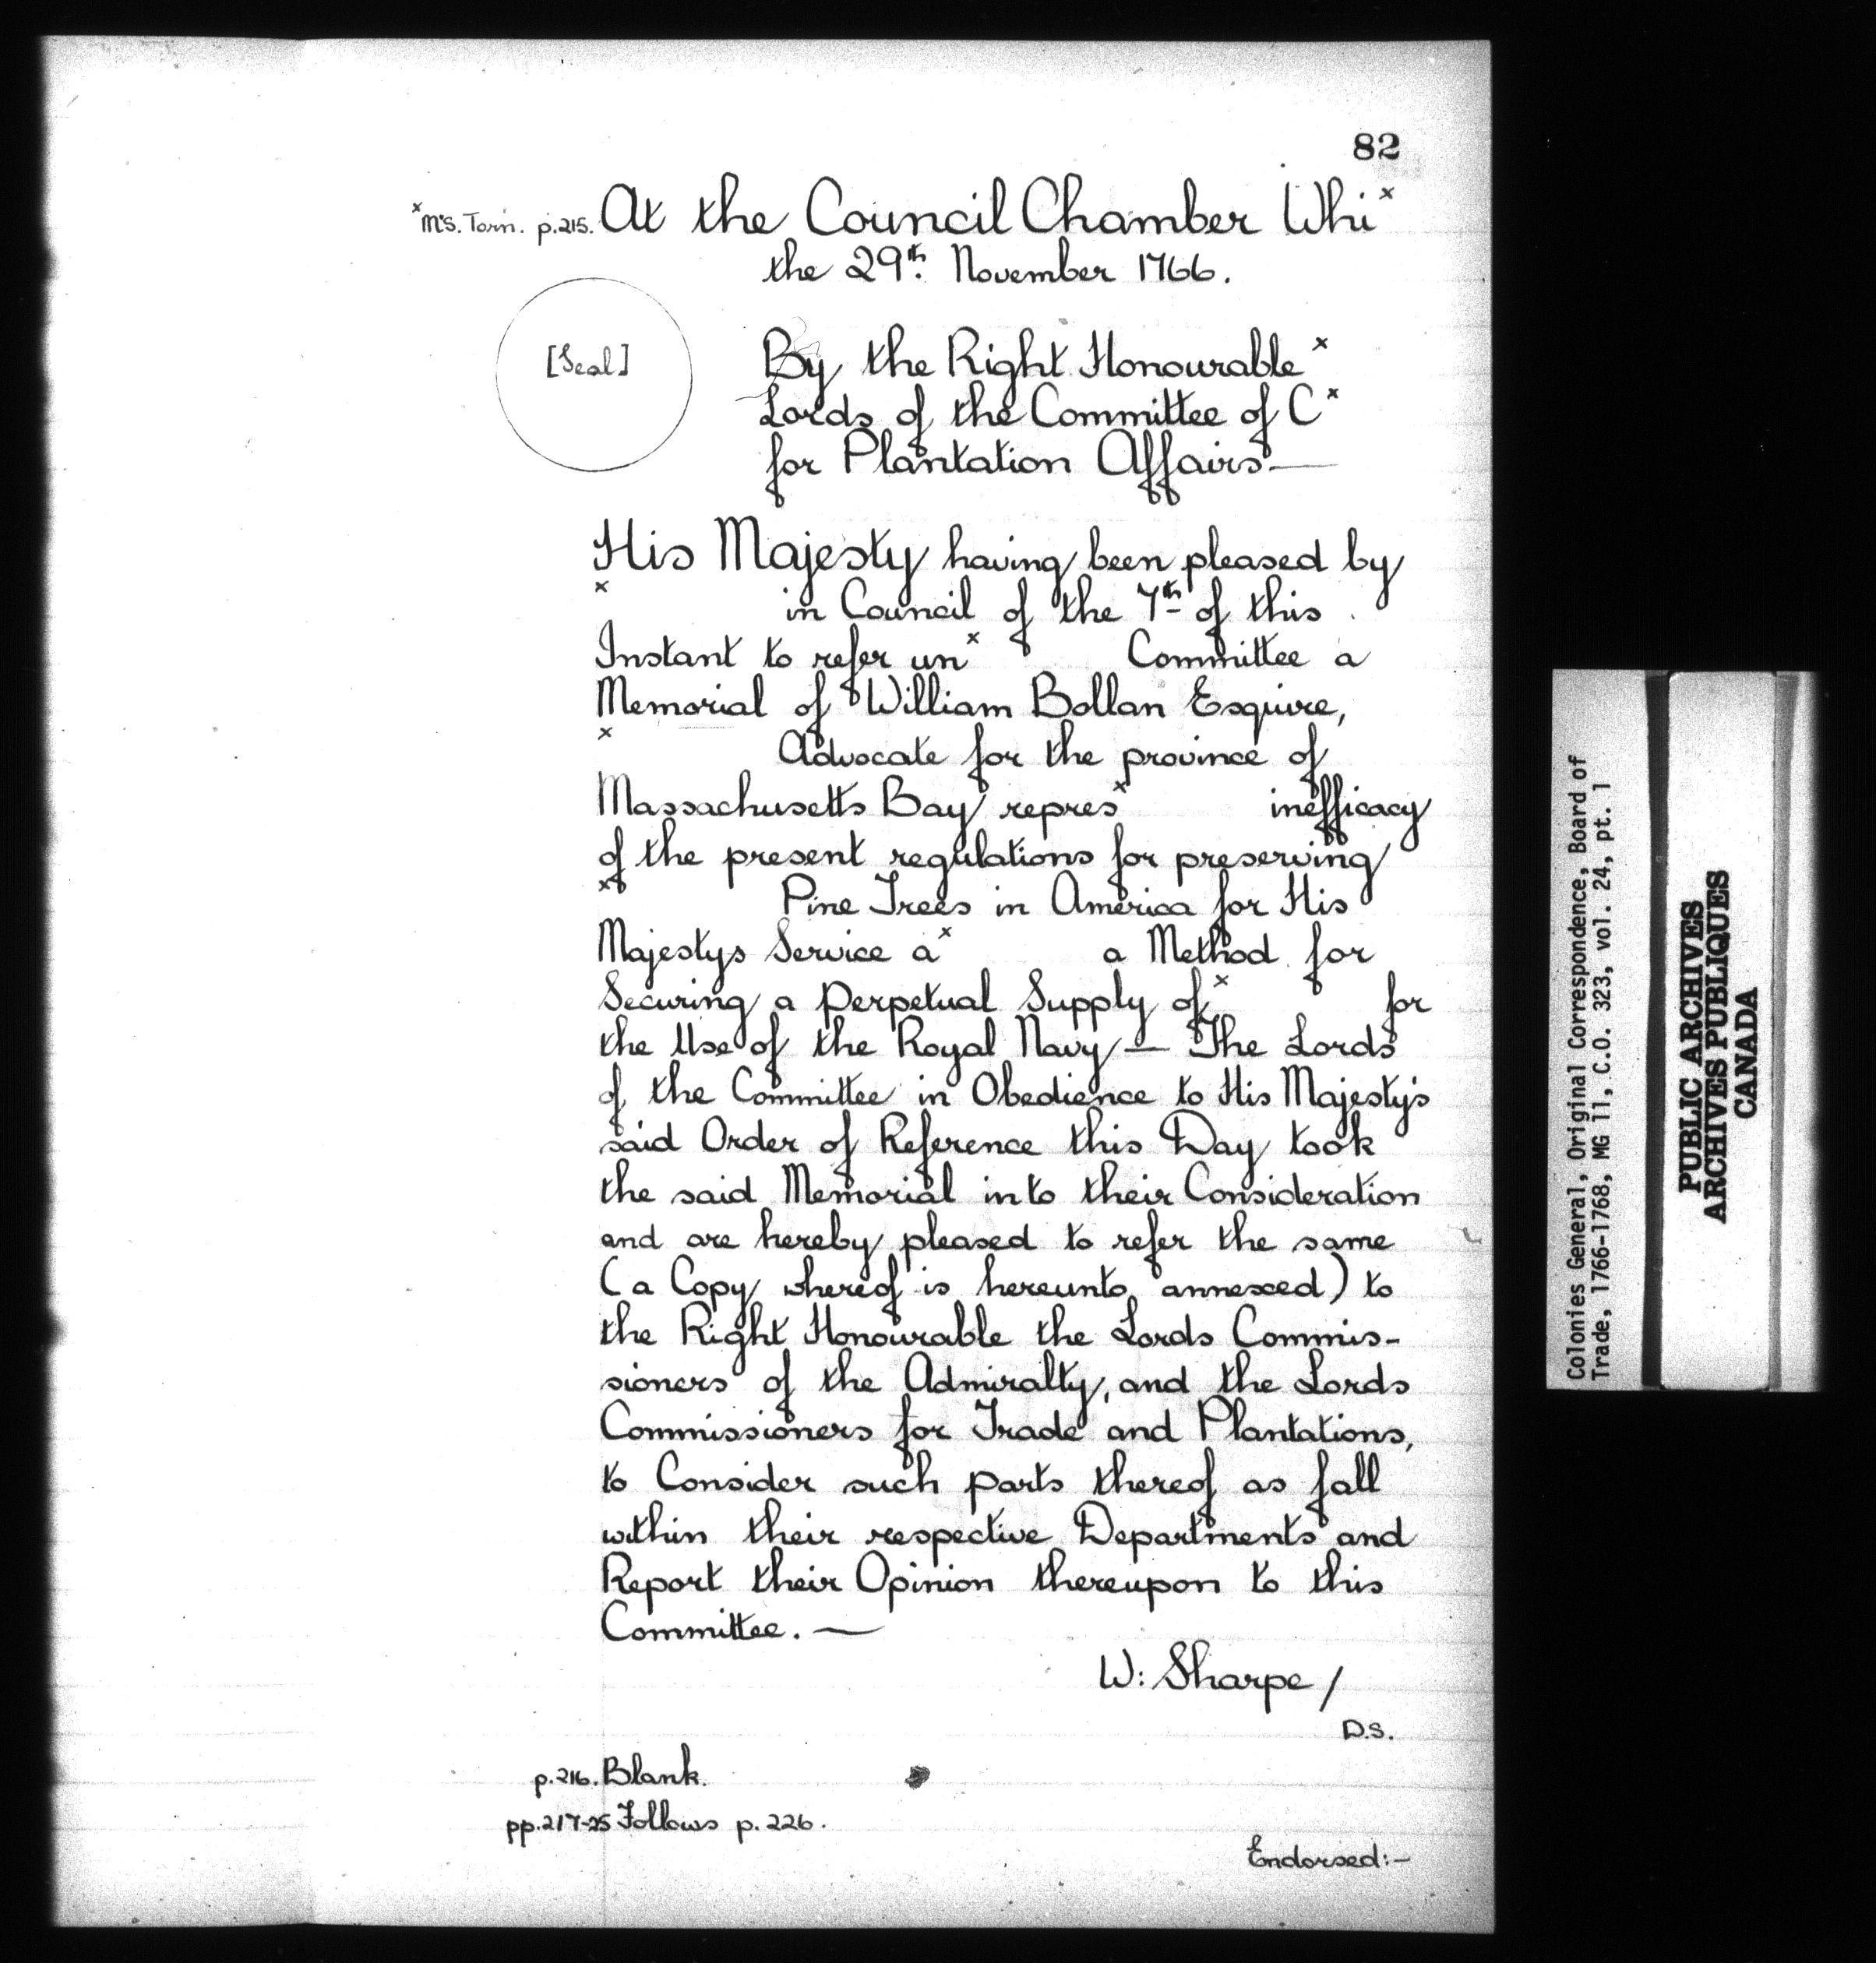 82
x M.S. Torn. p.215. At the Council Chamber Whi x
the 29th. November 1766.
[Seal]
By the Right Honourable x
Lords of the Committee of C x
for Plantation Affairs —
His Majesty having been pleased by
x in Council of the 7th of this
Instant to refer un x Committee a
Memorial of William Bollan Esquire,
x Advocate for the province of
Massachusetts Bay repres x inefficacy
of the present regulations for preserving
x Pine Trees in America for His
Majestys Service a x a Method for
Securing a perpetual Supply of x for
the Use of the Royal Navy — The Lords
of the Committee in Obedience to His Majesty's
said Order of Reference this Day took
the said Memorial into their Consideration
and are hereby pleased to refer the same
(a Copy whereof is hereunto annexed) to
the Right Honourable the Lords Commis-
sioners of the Admiralty, and the Lords
Commissioners for Trade and Plantations,
to Consider such parts thereof as fall
within their respective Departments and
Report their Opinion thereupon to this
Committee. —
W: Sharpe /
D.S.
p.216. Blank.
pp.217-25 Follows p.226.
Endorsed:-
Colonies General, Original Correspondence, Board of
Trade, 1766-1768, MG 11, C.O. 323, vol. 24, pt. 1
PUBLIC ARCHIVES
ARCHIVES PUBLIQUES
CANADA